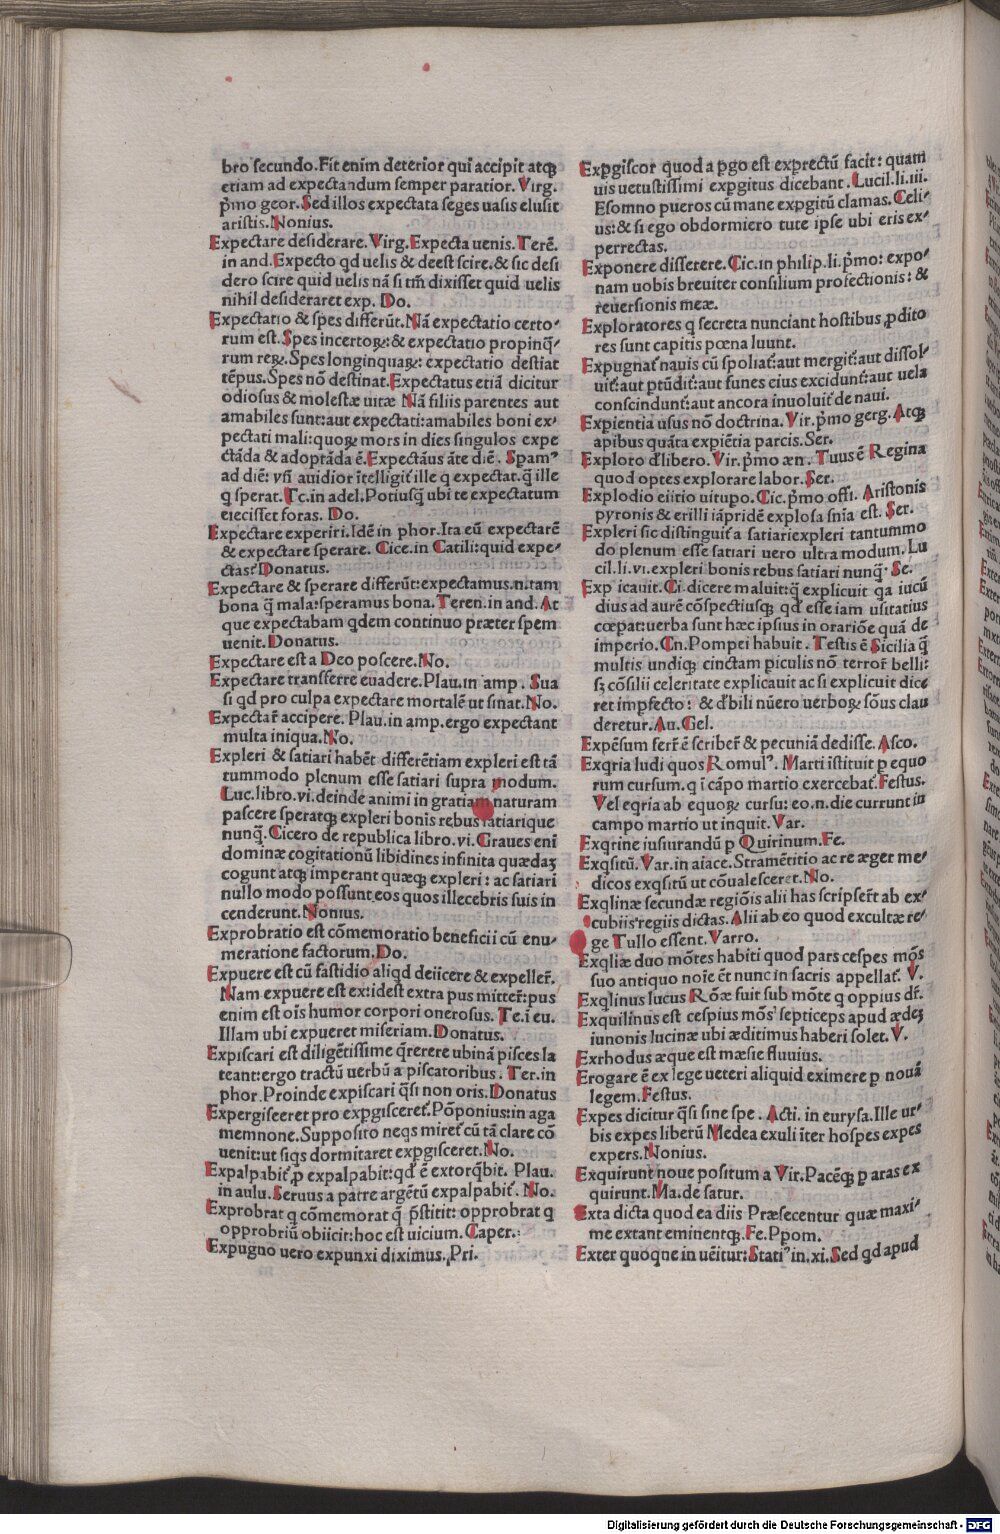 bro secundo.Fit enim deterior qui accipit atqꝫ
etiam ad expectandum semper paratior. Virg.
p̄mo geor. Sed illos expectata seges uasis elusit
aristis. Nonius.
Expectare desiderare. Virg. Expecta uenis. Terē.
in and. Expecto qd uelis & deest scire. & sic desi
dero scire quid uelis nā si tm̄ dixisset quid uelis
nihil desideraret exp. Do.
Expectatio & spes differūt. Nā expectatio certo⸗
rum est. Spes incertoꝝ: & expectatio propinq̄⸗
rum reꝝ. Spes longinquaꝝ: expectatio destiat
tēpus. Spes nō destinat. Expectatus etiā dicitur
odiosus & molestæ uitæ Nā filiis parentes aut
amabiles sunt: aut expectati: amabiles boni ex⸗
pectati mali: quoꝝ mors in dies singulos expe
ctāda & adoptāda ē. Expectāus āte diē. Spamꝰ
ad diē: vn̄ auidior ītelligit᷑ ille q expectat. q̄ ille
q sperat. Tc. in adel. Potiusq̄ ubi te expectatum
eiecisset foras. Do.
Expectare experiri. Idē in phor. Ita eū expectarē
& expectare sperare. Cice. in Catili: quid expe⸗
ctas? Donatus.
Expectare & sperare differūt: expectamus .n. tam
bona q̄ mala: speramus bona. Teren. in and. At
que expectabam qdem continuo præter spem
uenit. Donatus.
Expectare est a Deo poscere. No.
Expectare transferre euadere. Plau. in amp. Sua
si qd pro culpa expectare mortalē ut sinat. No.
Expectar̄ accipere. Plau. in amp. ergo expectant
multa iniqua. No.
Expleri & satiari habēt differētiam expleri est tā
tummodo plenum esse satiari supra modum.
Luc. libro. vi. deinde animi in gratiam naturam
pascere speratqꝫ expleri bonis rebus satiarique
nunq̄. Cicero de republica libro. vi. Graues eni
dominæ cogitationū libidines infinita quædaꝫ
cogunt atqꝫ imperant quæqꝫ expleri: ac satiari
nullo modo possunt eos quos illecebris suis in
cenderunt. Nonius.
Exprobratio est cōmemoratio beneficii cū enu⸗
meratione factorum. Do.
Expuere est cū fastidio aliqd deiicere & expeller̄.
Nam expuere est ex: idest extra pus mitter̄: pus
enim est oīs humor corpori onerosus. Te. i eu.
Illam ubi expueret miseriam. Donatus.
Expiscari est diligētissime q̄rerere ubinā pisces la
teant: ergo tractū uerbū a piscatoribus. Ter. in
phor. Proinde expiscari q̄si non oris. Donatus
Expergisceret pro expgisceret᷑. Pōponius: in aga
memnone. Supposito neqs miret᷑ cū tā clare cō
uenit: ut siqs dormitaret expgisceret. No.
Expalpabit᷑ p̱ expalpabit: qd̄ ē extorq̄bit. Plau.
in aulu. Seruus a patre argētū expalpabit᷑. No.
Exprobrat q cōmemorat q̄ p̄stitit: opprobrat q
opprobriū obiicit: hoc est uicium. Caper.
Expugno uero expunxi diximus. Pri.
Expgiscor quod a pgo est exprectū facit: quam
uis uetustissimi expgitus dicebant. Lucil. li. iii.
Esomno pueros cū mane expgitū clamas. Celi⸗
us: & si ego obdormiero tute ipse ubi eris ex⸗
perrectas.
Exponere disserere. Cic. in philip. li. p̄mo: expo⸗
nam uobis breuiter consilium profectionis: &
reuersionis meæ.
Exploratores q secreta nunciant hostibus, pdito
res sunt capitis pœna luunt.
Expugnat᷑ nauis cū spoliat᷑: aut mergit᷑: aut dissol⸗
uit᷑: aut ptūdit᷑: aut funes eius excidunt᷑: aut uela
conscindunt᷑: aut ancora inuoluit᷑ de naui.
Expientia usus nō doctrina. Vir. p̄mo gerg. Atqꝫ
apibus quāta expiētia parcis. Ser.
Exploto d̄libero. Vir. p̄mo æn. Tuus ē Regina
quod optes explorare labor. Ser.
Explodio eiitio uitupo. Cic. p̄mo offi. Aristonis
pyronis & erilli iāpridē explosa sn̄ia est. Ser.
Expleri sic distinguit᷑ a satiari expleri tantummo
do plenum esse satiari uero ultra modum. Lu
cil. li. vi. expleri bonis rebus satiari nunq̄. Se.
Exp icauit. Ci. dicere maluit: q̄ explicuit qa iucū
dius ad aurē cōspectiusqꝫ qd̄ esse iam usitatius
cœpat: uerba sunt hæc ipsius in oratiōe quā de
imperio. Cn. Pompei habuit. Testis ē Sicilia q̄
multis undiqꝫ cinctam piculis nō terror̄ belli:
sꝫ cōsilii celeritate explicauit ac si explicuit dice
ret impfecto: & d̄bili nūero uerboꝝ sōus clau
deretur. Au. Gel.
Expēsum ferr̄ ē scriber̄ & pecuniā dedisse. Asco.
Exqria ludi quos Romulꝰ. Marti istituit p equo
rum cursum. q i cāpo martio exercebat᷑. Festus.
Vel eqria ab equoꝝ cursu: eo .n. die currunt in
campo martio ut inquit. Var.
Exqrine iusiurandū p Quirinum. Fe.
Exqsitū. Var. in aiace. Stramētitio ac re æger me⸗
dicos exqsitū ut cōualesceret. No.
Exqlinæ secundæ regiōis alii has scripser̄t ab ex⸗
cubiis regiis dictas. Alii ab eo quod excultæ re⸗
ge Tullo essent. Varro.
Exqliæ duo mōtes habiti quod pars cespes mōs
suo antiquo noīe ēt nunc in sacris appellat᷑. V.
Exqlinus lucus Rōæ fuit sub mōte q oppius dr̄.
Exquilinus est cespius mōsꝰ septiceps apud ædeꝫ
iunonis lucinæ ubi æditimus haberi solet. V.
Exrhodus æque est mæsie fluuius.
Erogare ē ex lege ueteri aliquid eximere p nouā
legem. Festus.
Expes dicitur q̄si sine spe. Acti. in eurysa. Ille ur⸗
bis expes liberū Medea exuli īter hospes expes
expers. Nonius.
Exquirunt noue positum a Vir. Pacēqꝫ p aras ex
quirunt. Ma. de satur.
Exta dicta quod ea diis Præsecentur quæ maxi⸗
me extant eminentqꝫ. Fe. Ppom.
Exter quoqne in uēitur: Statiꝰ in. xi. Sed qd apud
Digitalisierung gefördert durch die Deutsche Forschungsgemeinschaft - DFG